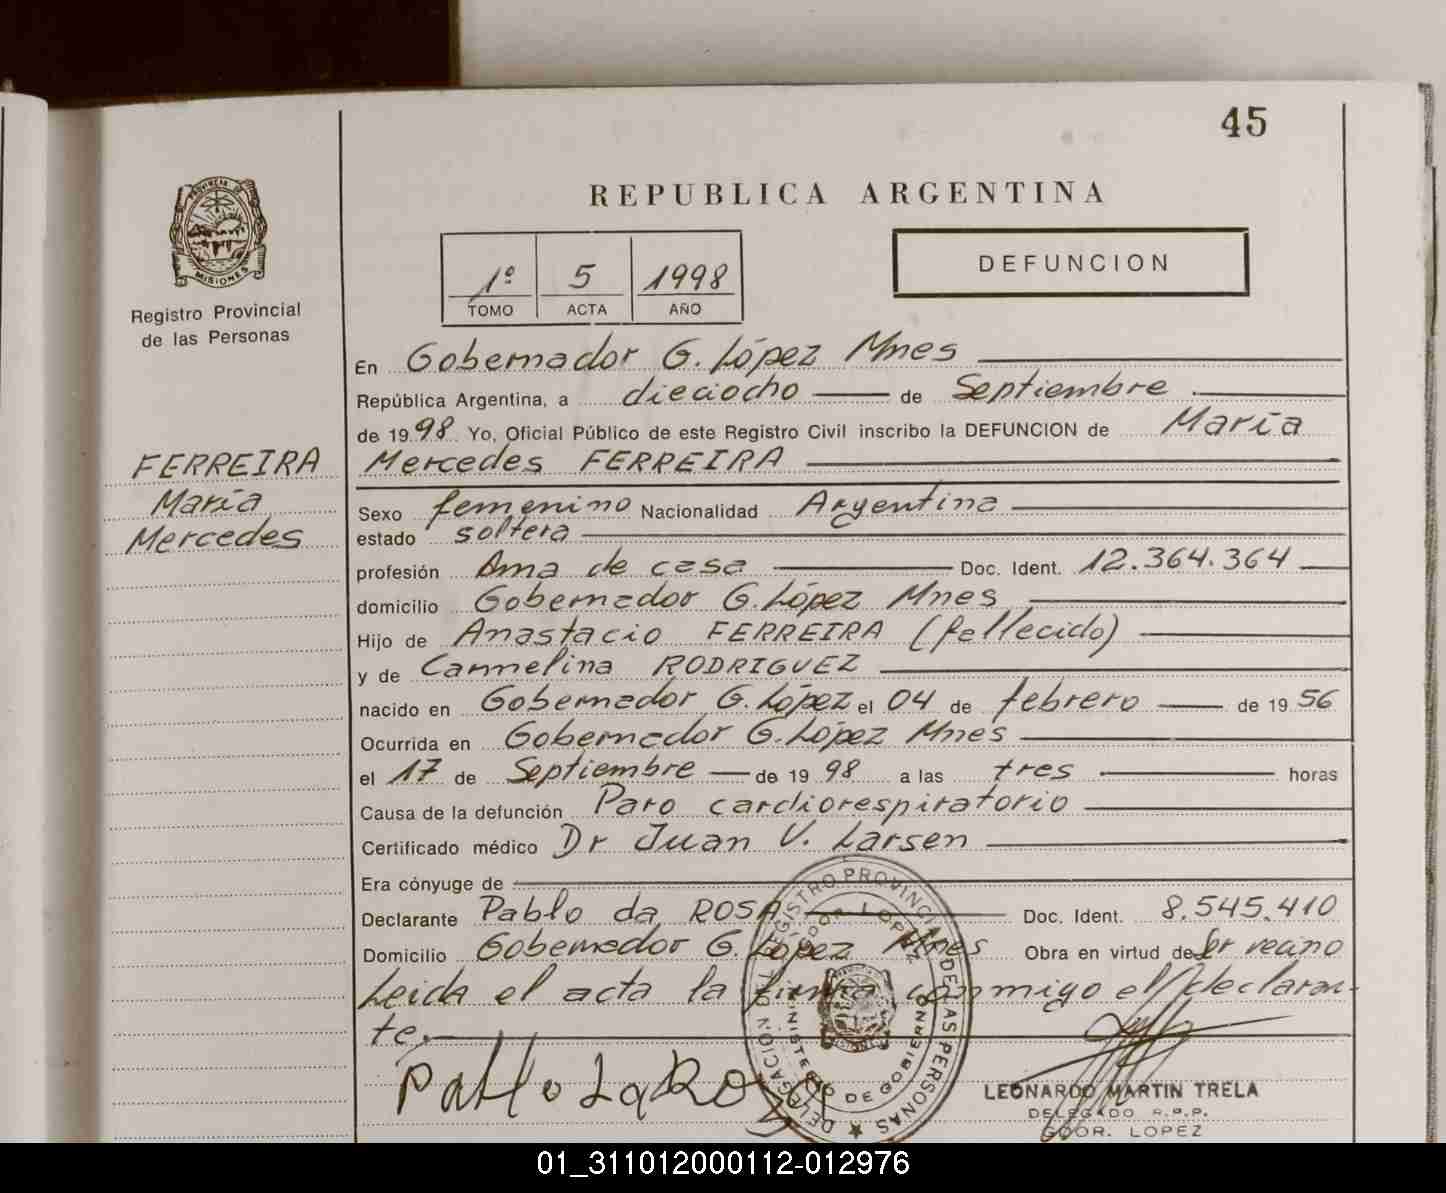 45
PROVINCIA DE
MISIONES
Registro Provincial
de las Personas
REPUBLICA ARGENTINA
1º 5 1998
TOMO ACTA AÑO
DEFUNCION
En Gobernador G. López Mnes
República Argentina, a dieciocho de Septiembre
de 1998 Yo, Oficial Público de este Registro Civil inscribo la DEFUNCION de María
Mercedes FERREIRA
FERREIRA
María
Mercedes
Sexo femenino Nacionalidad Argentina
estado soltera
profesión Ama de casa Doc. Ident. 12.364.364
domicilio Gobernador G. López Mnes
Hijo de Anastacio FERREIRA (fallecido)
y de Carmelina RODRIGUEZ
nacido en Gobernador G. López el 04 de febrero de 1956
Ocurrida en Gobernador G. López Mnes
el 17 de Septiembre de 1998 a las tres horas
Causa de la defunción Paro cardiorespiratorio
Certificado médico Dr Juan V. Larsen
Era cónyuge de
Declarante Pablo da ROSA Doc. Ident. 8.545.410
Domicilio Gobernador G. López Mnes Obra en virtud de Ser vecino
Leida el acta la firma conmigo el declaran-
te.
REGISTRO PROVINCIAL DE LAS PERSONAS
DELEGACION
MINISTERIO DE GOBIERNO
LEONARDO MARTIN TRELA
DELEGADO R.P.P.
GDOR. LOPEZ
01_311012000112-012976